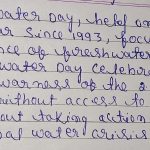 water Day, held on
ar since 1993, focu
nce of freshwater
water Day celebra
warness of the 2
without access to
out taking action
bal water crisis